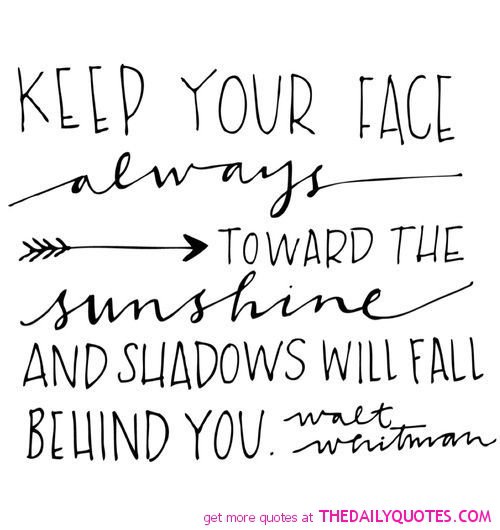 KEEP YOUR FACE
always
TOWARD THE
sunshine
AND SHADOWS WILL FALL
BEHIND YOU. walt
whitman
get more quotes at THEDAILYQUOTES.COM